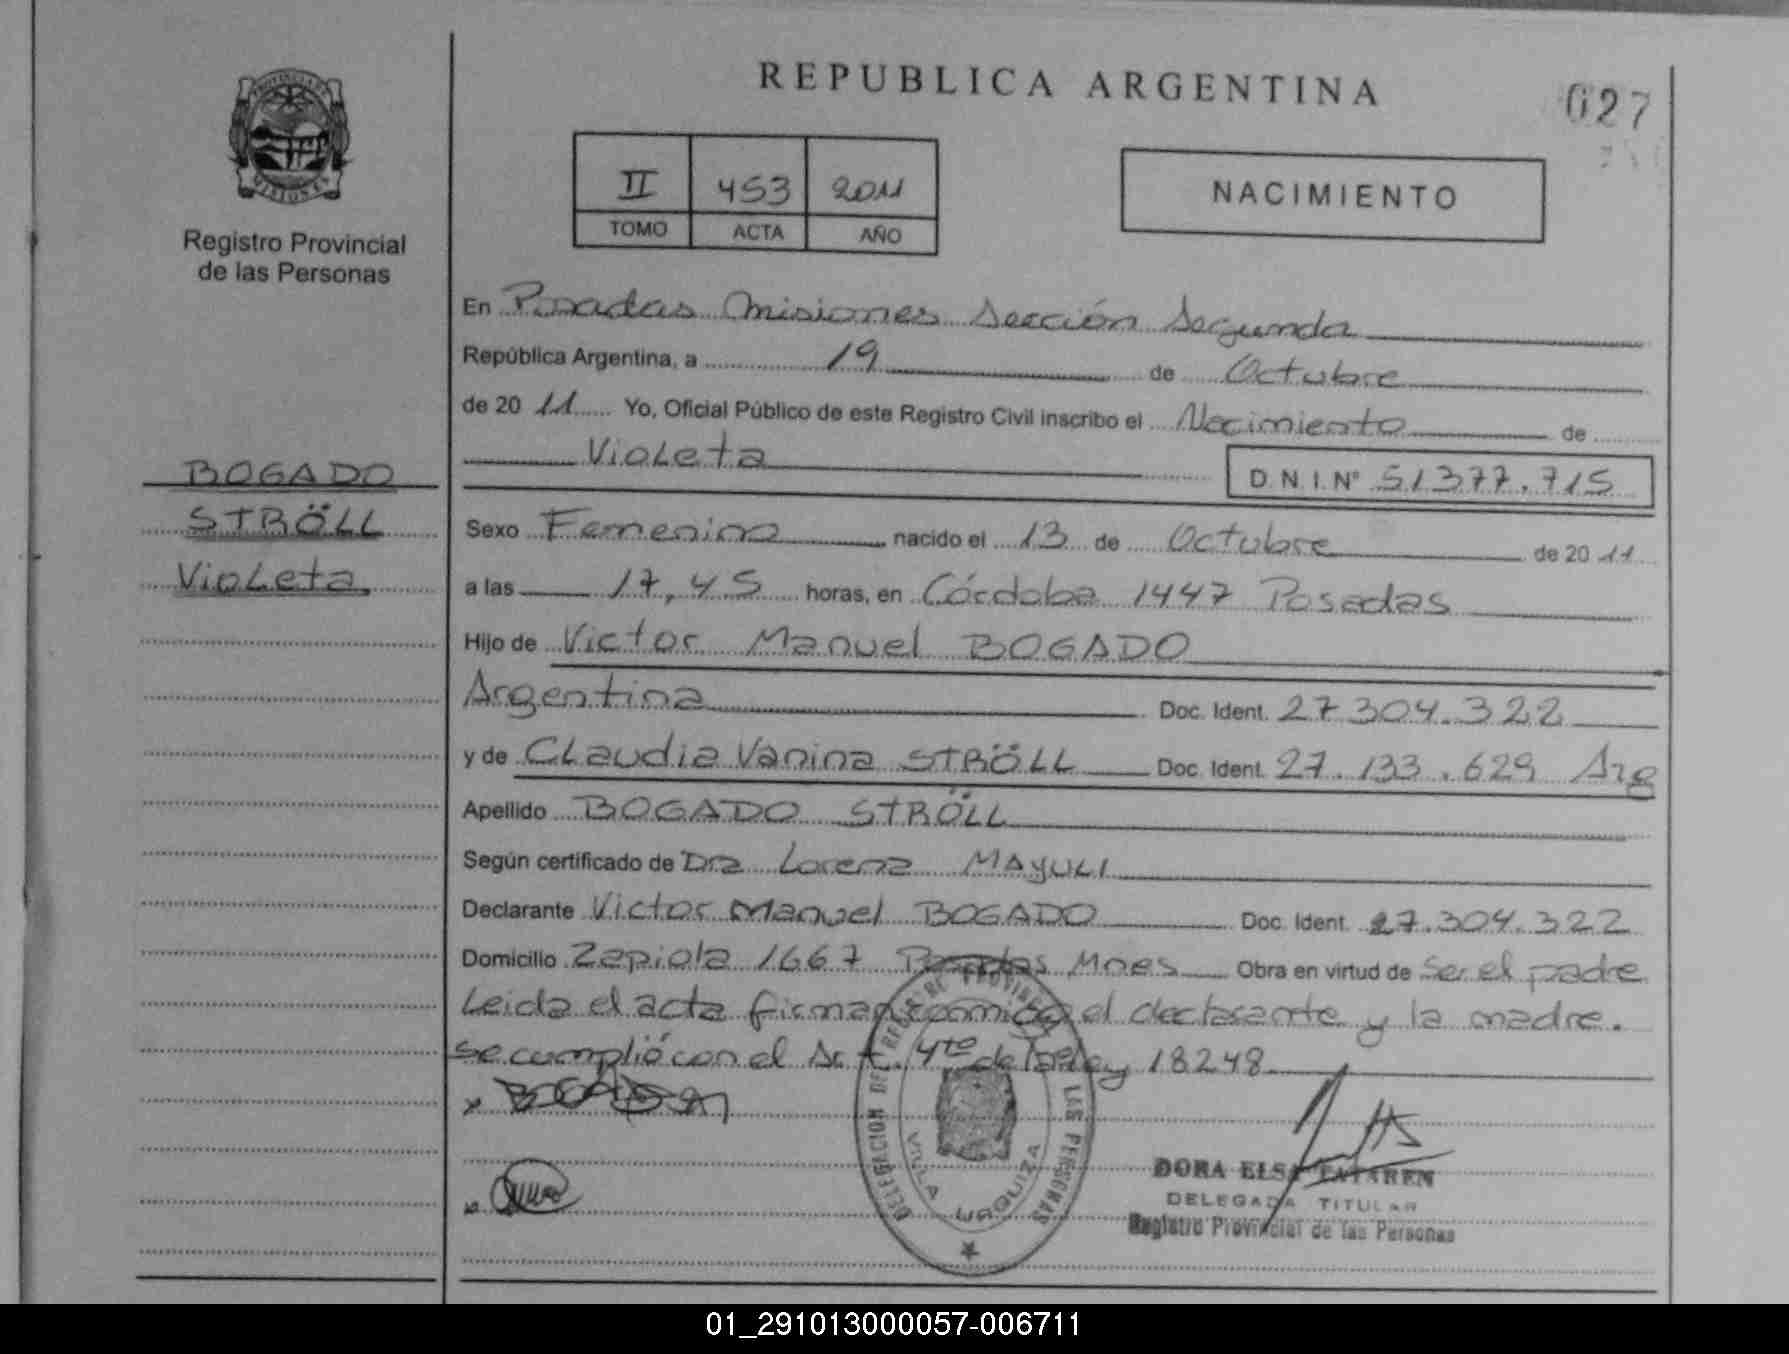 REPUBLICA ARGENTINA
027
PROVINCIA DE
MISIONES
Registro Provincial
de las Personas
II 453 2011
TOMO ACTA AÑO
NACIMIENTO
En Posadas Misiones Sección Segunda
República Argentina, a 19 de Octubre
de 20 11 Yo, Oficial Público de este Registro Civil inscribo el Nacimiento de
Violeta
D.N.I.Nº 51377.715
BOGADO
STRÖLL
Violeta
Sexo Femenino nacido el 13 de Octubre de 20 11
a las 17,45 horas, en Córdoba 1447 Posadas
Hijo de Victor Manuel BOGADO
Argentina Doc. Ident. 27 304.322
y de Claudia Vanina STRÖLL Doc. Ident. 27.133.629 Arg
Apellido BOGADO STRÖLL
Según certificado de Dra Lorena MAYULI
Declarante Victor Manuel BOGADO Doc. Ident. 27.304.322
Domicilio Zapiola 1667 Posadas Mnes Obra en virtud de Ser el padre
Leida el acta firman conmigo el declarante y la madre.
se cumplió con el Art. 4to de la Ley 18248
x BOGADO
DELEGACION DEL REGISTRO PROVINCIAL DE LAS PERSONAS
VILLA URQUIZA
DORA ELSA
DELEGADA TITULAR
Registro Provincial de las Personas
01_291013000057-006711